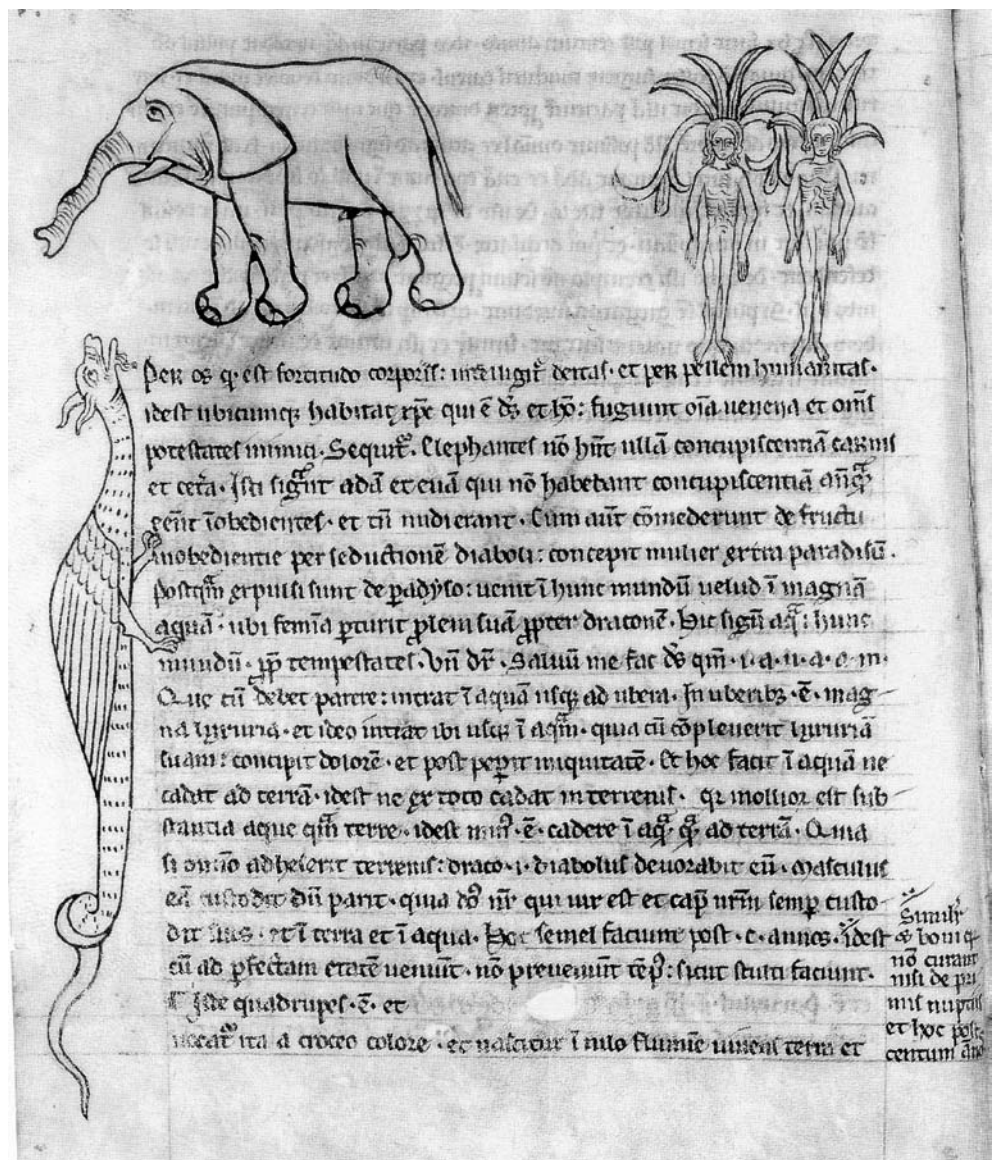 Per os q̄ est fortitudo corporis: intelligit̄ deitas· et per pellem humanitas·
idest ubicumq; habitat xp̄c qui ē dſ et hō: fugiunt oīa uenena et om̄s
potestates inimici· Sequit̄· Elephantes nō hn̄t ullā concupiscentiā carnis
et cet̄a· Isti sign̄t adā et euā qui nō habebant concupiscentiā an̄q̄
eēnt īobedientes· et tn̄ nudi erant· Cum aūt cōmederunt de fructu
inobedientie per seductionē diaboli: concepit mulier extra paradisū·
postq̄m expulsi sunt de padyso: uenit ī hunc mundū uelud ī magnā
aquā· ubi femīa parturit plem suā ppter draconē· Hic sign̄ aq̄: hunc
mundū· pp̄ tempestates· Vn̄ dr̄· Saluū me fac dſ qm̄· i· a· u· a· a· m·
Que cū debet parere: intrat ī aquā usq; ad ubera· In uberibz· ē· mag-
na luxuria· et ideo intrat ibi usq; ī aq̄m· quia cū cōpleuerit luxuriā
suam: concipit dolorē· et post pep̄it iniquitatē· Et hoc facit ī aquā ne
cadat ad terrā· idest ne ex toto cadat in terrenis· qr mollior est sub-
stantia aque qm̄ terre· idest min⁹· ē· cadere ī aq̄ q̄ ad terrā· Quia
si om̄īo adheserit terrenis: draco· i· diabolus deuorabit eū· Masculus
eā custodit dū parit· quia d⁹ nr̄ qui uir est et cap̄ nr̄m semp custo-
dit suos· et ī terra et ī aqua· Hoc semel faciunt post· c· annos· idest
cū ad pfectam etatē uenīnt· nō preueniūt tēp⁹: sicut stulti faciunt·
Iste quadrupes· ē· et
ita a croceo colore· et nascitur ī nilo flumine uiuens terra et
Simil̄r
& boni q
nō curant
nisi de pri
mis nuptiis
et hoc post
centum āno